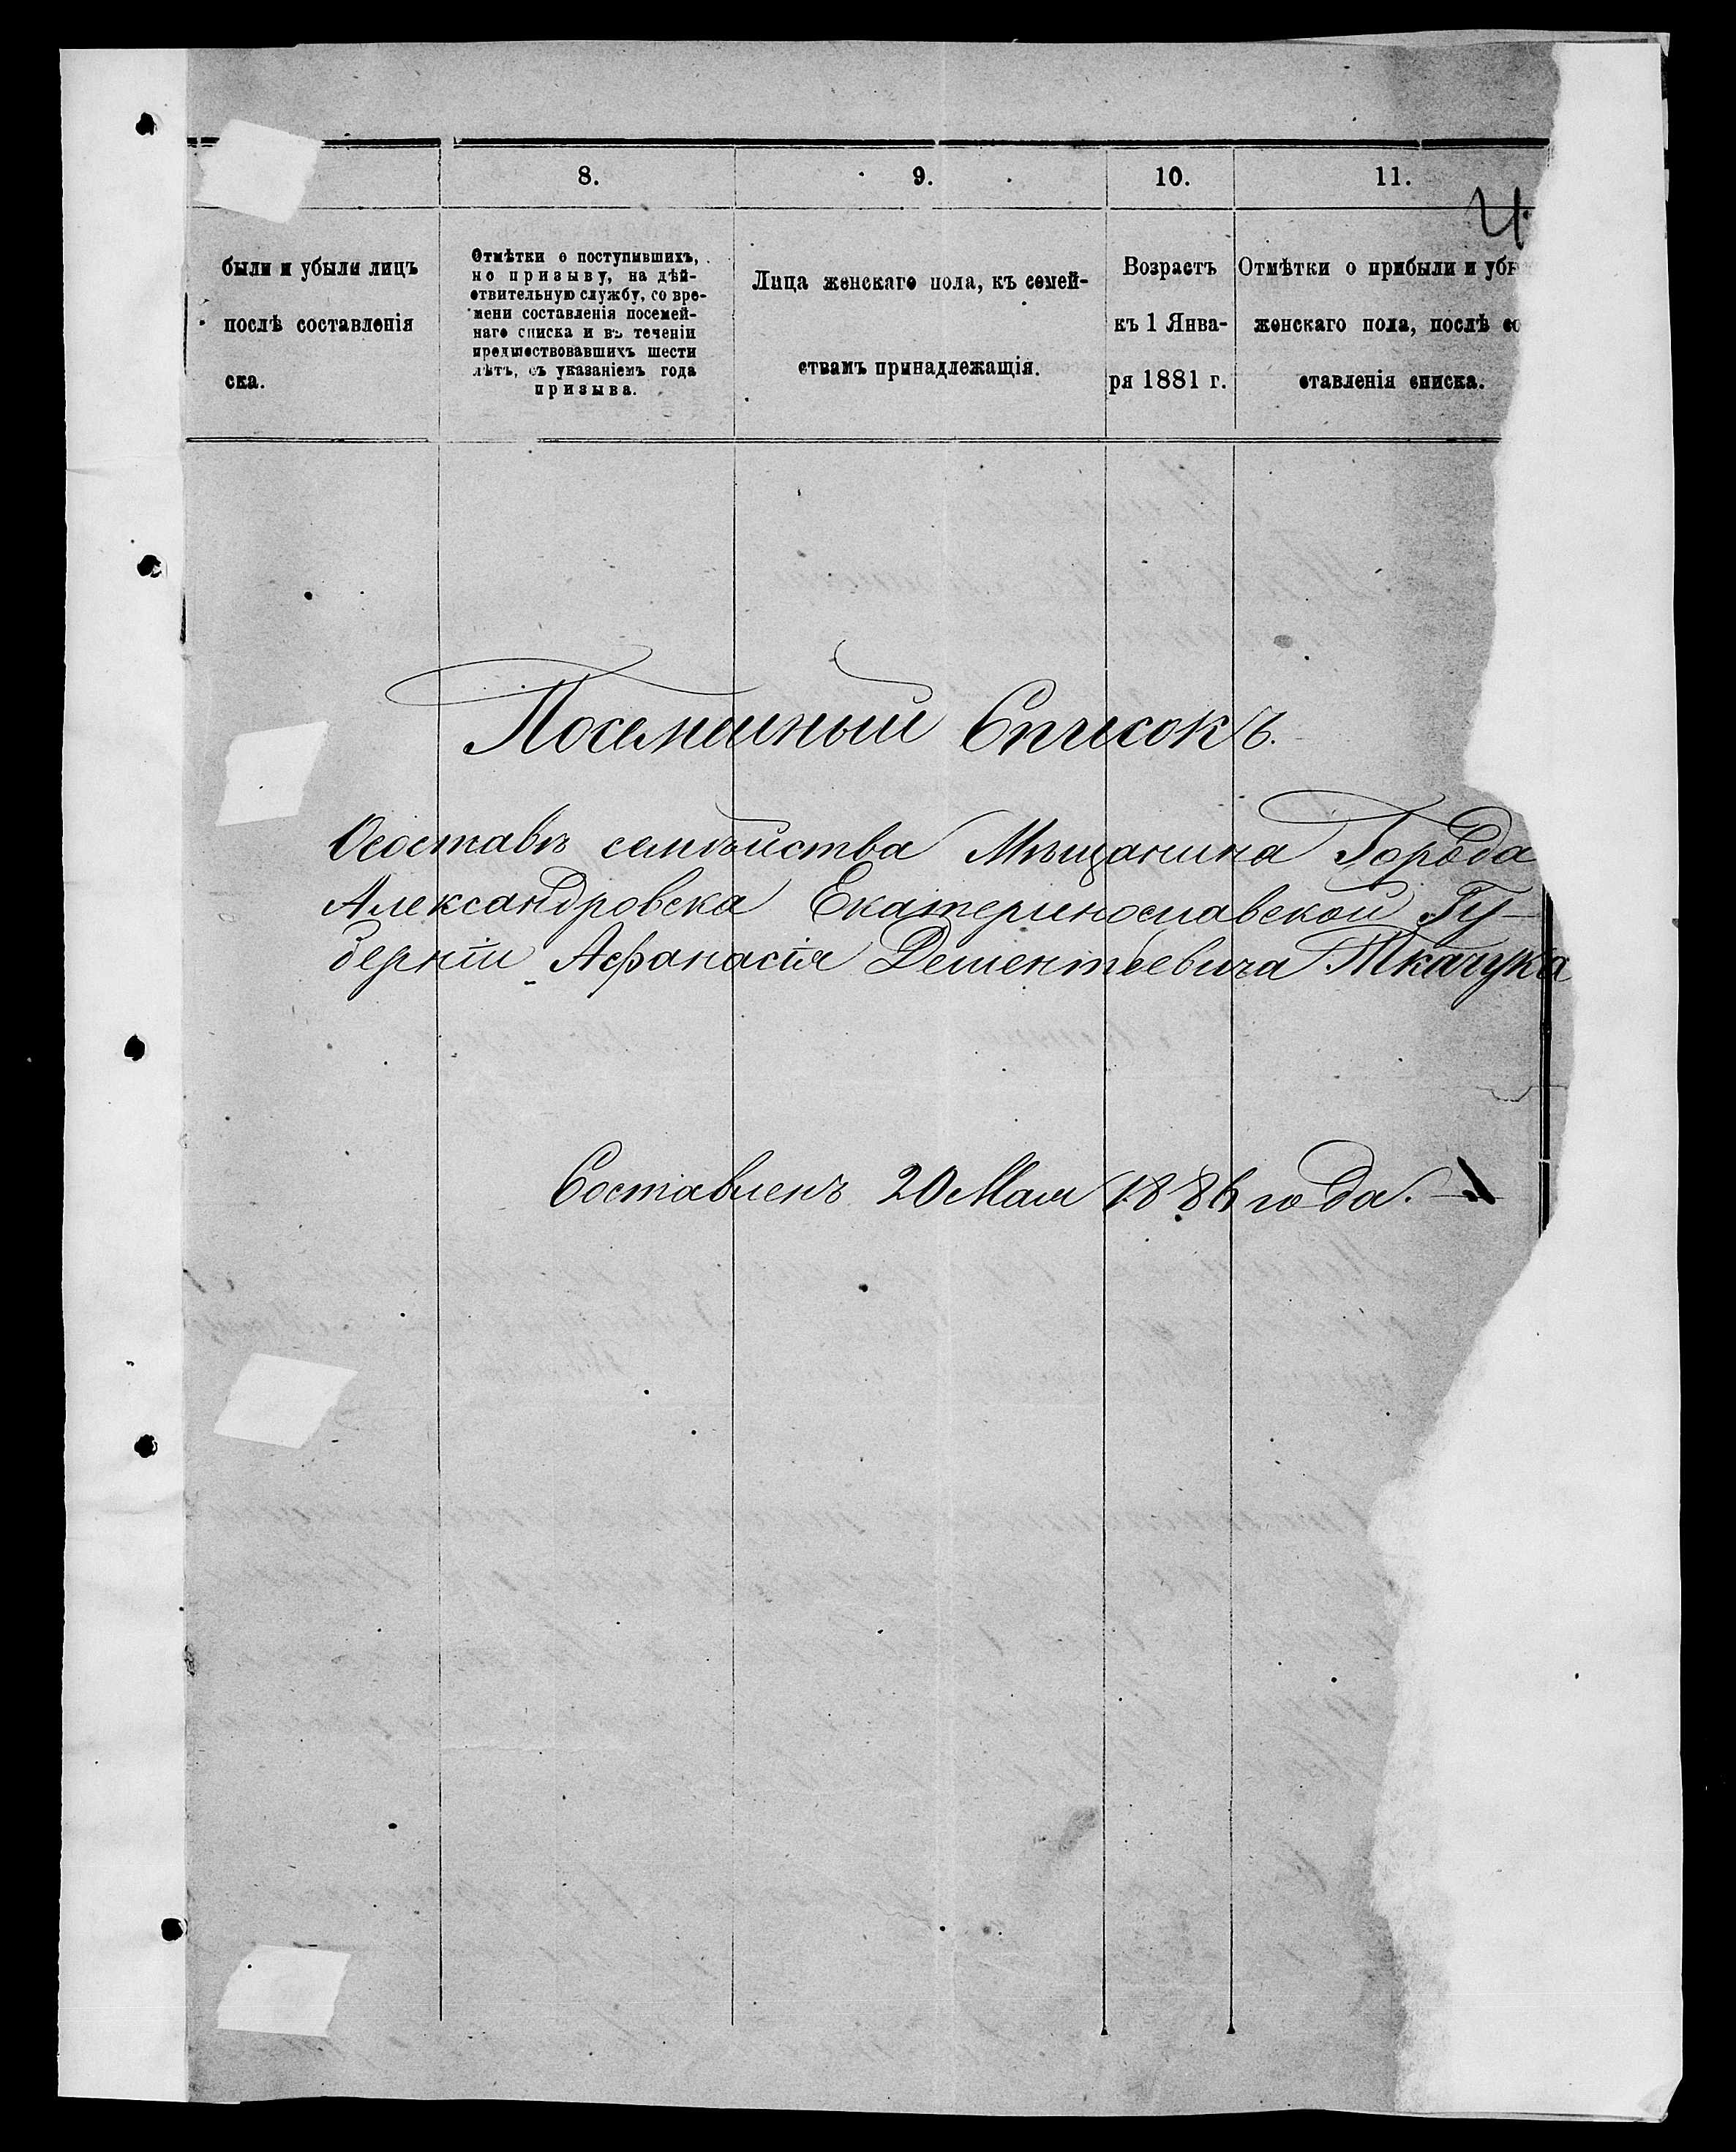 8. 9. 10. 11.
4.
были и убыли лицъ
послѣ составленія
ска.
Отмѣтки о поступившихъ,
по призыву, на дѣй-
ствительную службу, со вре-
мени составленія посемей-
наго списка и въ теченіи
предшествовавшихъ шести
лѣтъ, съ указаніемъ года
призыва.
Лица женскаго пола, къ семей-
ствамъ принадлежащія.
Возрастъ
къ 1 Янва-
ря 1881 г.
Отмѣтки о прибыли и убы
женскаго пола, послѣ со
ставленія списка.
Посемейный Списокъ.
Осоставѣ семѣйства Мѣщанина Города
Александровска Екатеринославской Гу-
берніи Афанасія Дементьевича Ткачука
Составленъ 20 Мая 1886 года.